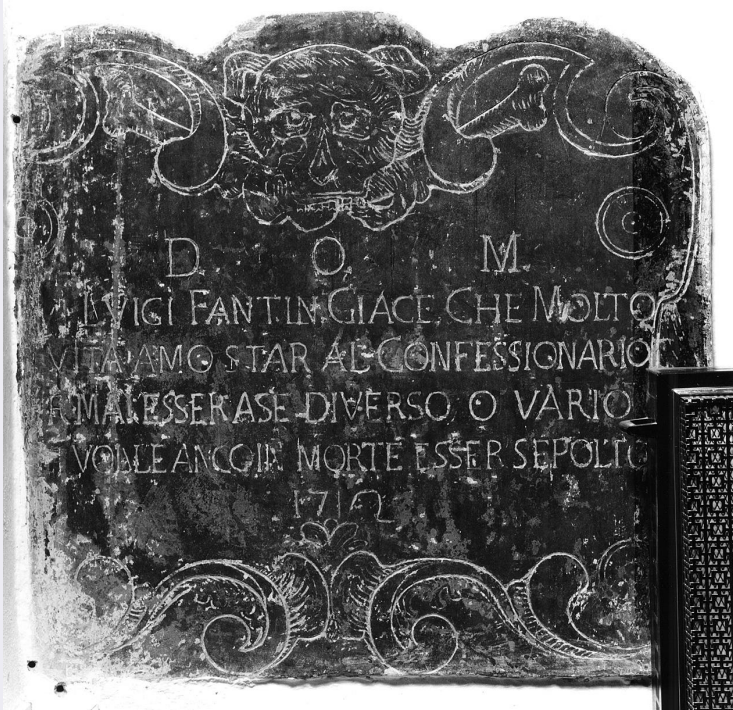 D. O. M.
LVIGI FANTIN. GIACE. CHE MOLTO
VITA AMO STAR AL CONFESSIONARIO
E MAI ESSER A SE DIVERSO O VARIO
VOLLE ANCO IN MORTE ESSER SEPOLTO
1712